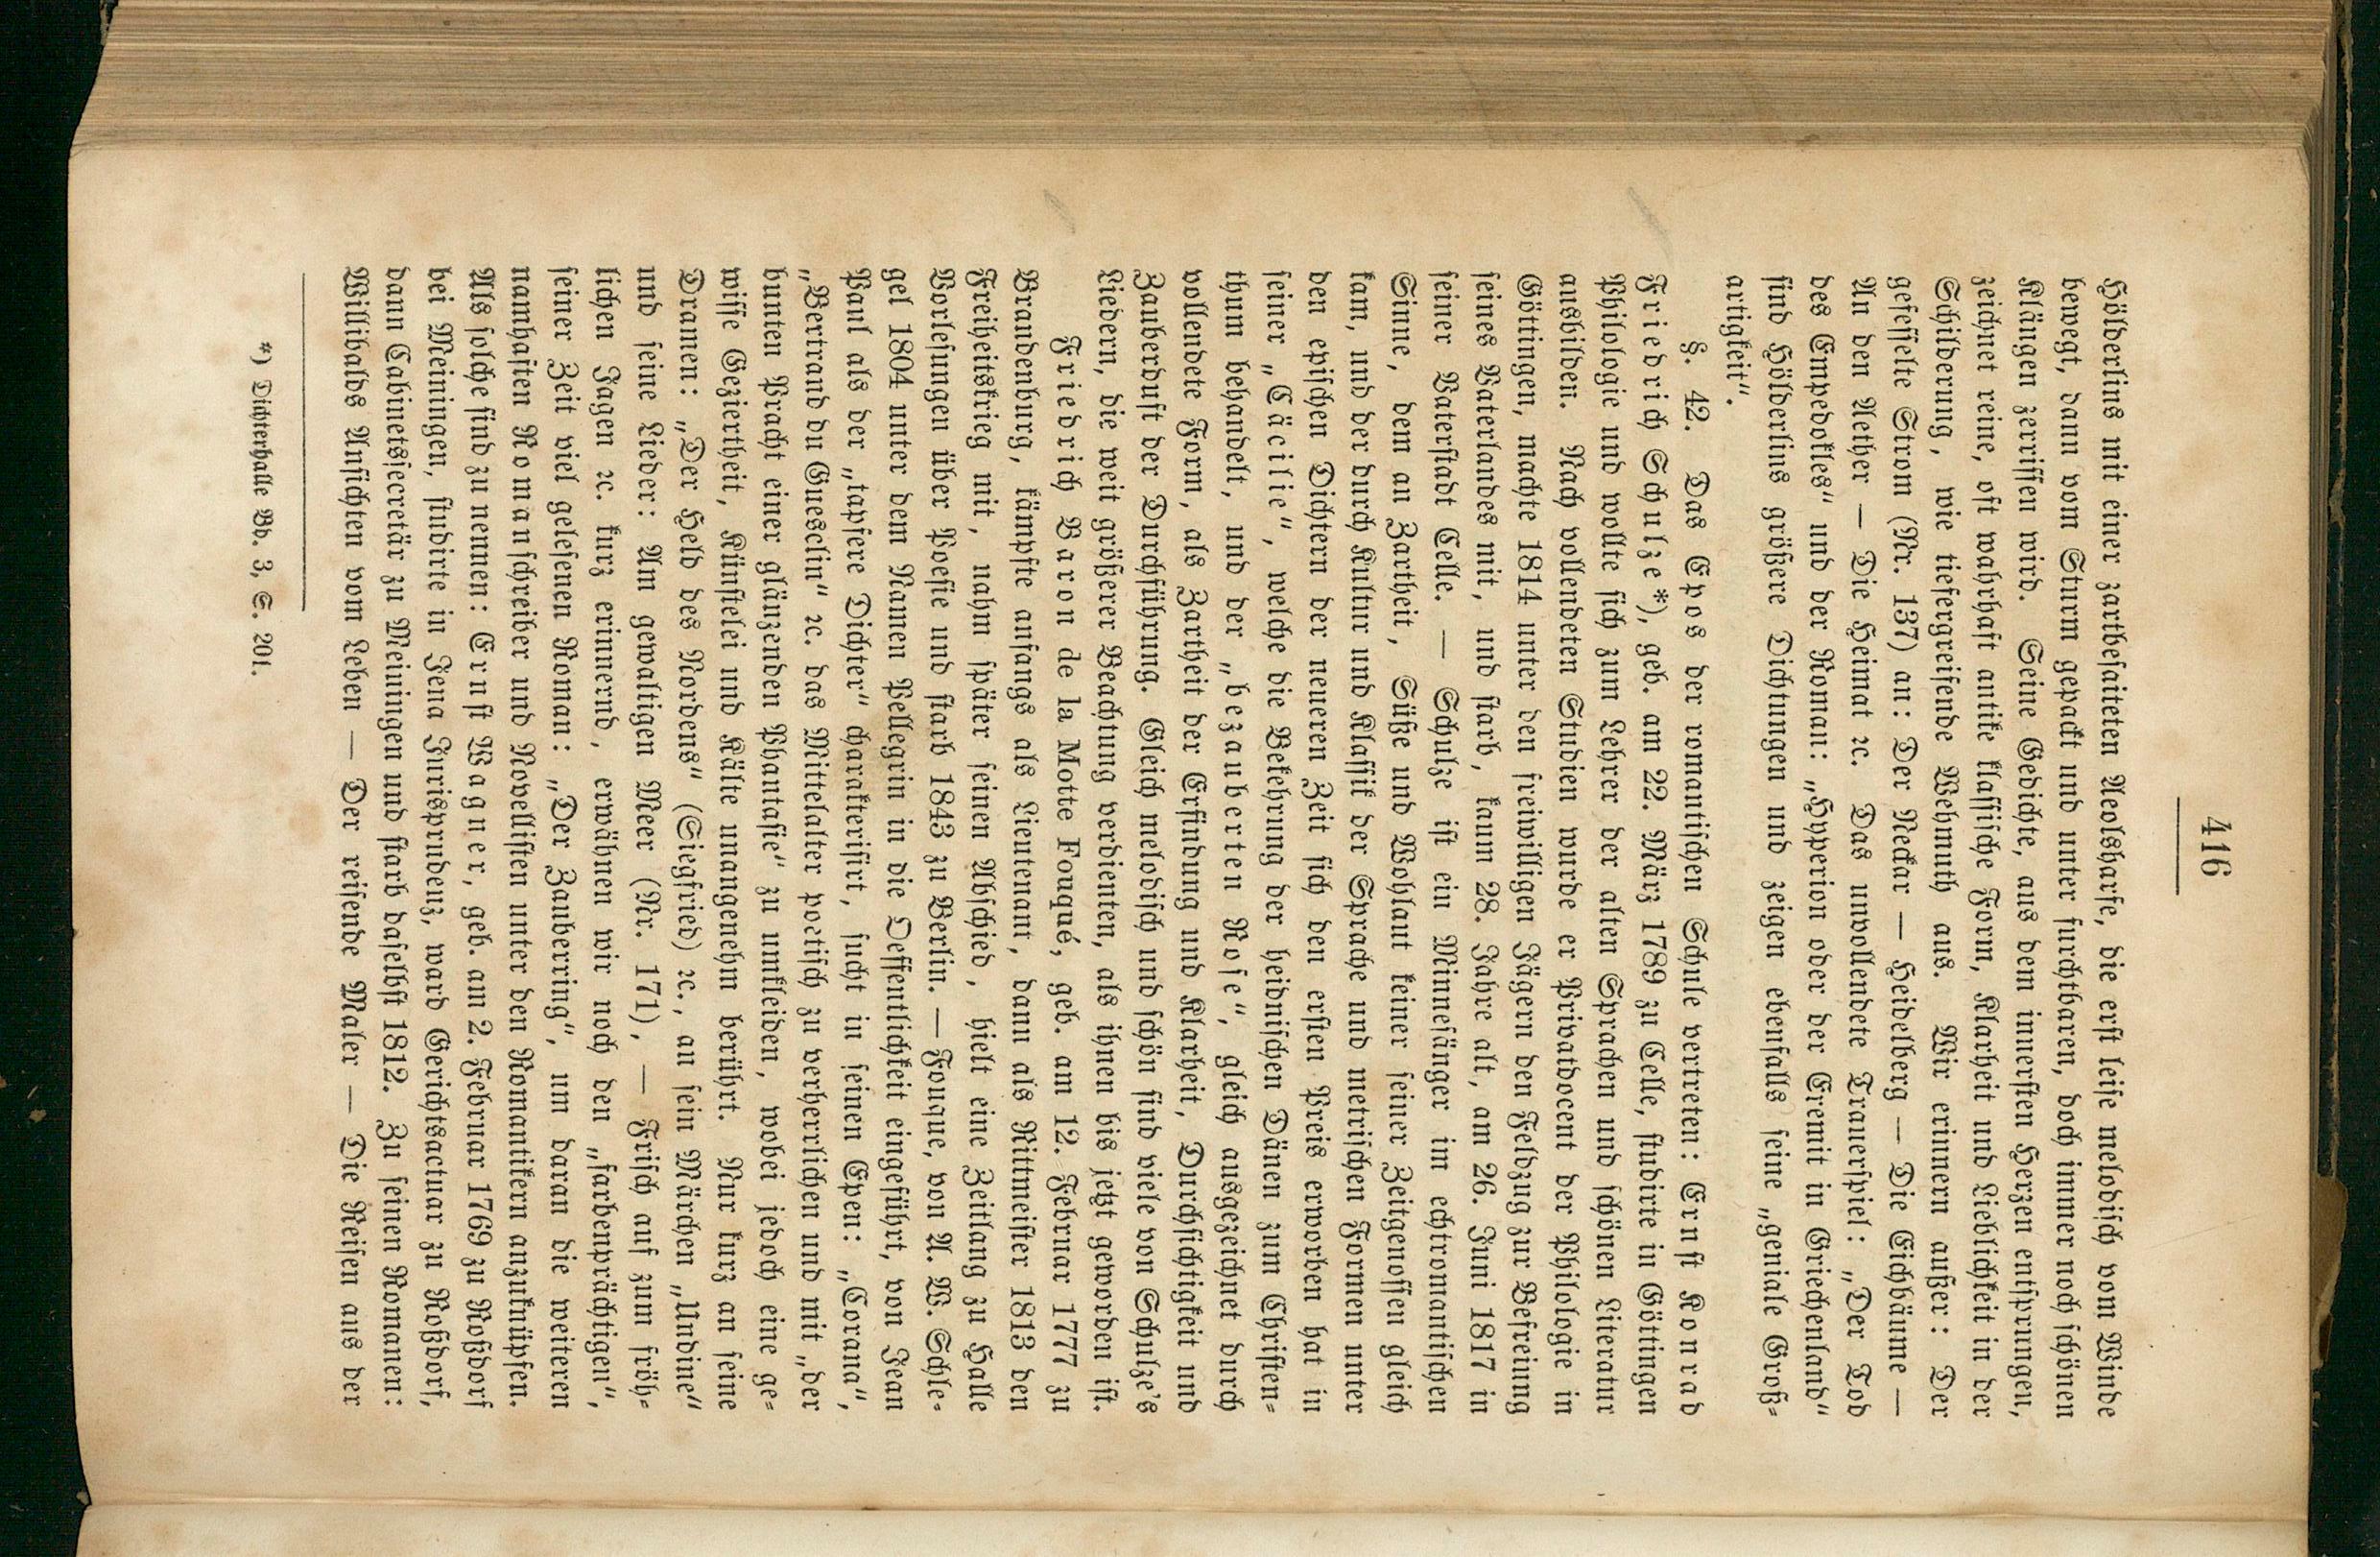 416
Hölderlins mit einer zartbesaiteten Aeolsharfe, die erst leise melodisch vom Winde
bewegt, dann vom Sturm gepackt und unter furchtbaren, doch immer noch schönen
Klängen zerrissen wird. Seine Gedichte, aus dem innersten Herzen entsprungen,
zeichnet reine, oft wahrhaft antike klassische Form, Klarheit und Lieblichkeit in der
Schilderung, wie tiefergreifende Wehmuth aus. Wir erinnern außer: Der
gefesselte Strom (Nr. 137) an: Der Neckar — Heidelberg — Die Eichbäume —
An den Aether — Die Heimat ꝛc. Das unvollendete Trauerspiel: „Der Tod
des Empedokles" und der Roman: „Hyperion oder der Eremit in Griechenland"
sind Hölderlins größere Dichtungen und zeigen ebenfalls seine „geniale Groß-
artigkeit".
§. 42. Das Epos der romantischen Schule vertreten: Ernst Konrad
Friedrich Schulze*), geb. am 22. März 1789 zu Celle, studirte in Göttingen
Philologie und wollte sich zum Lehrer der alten Sprachen und schönen Literatur
ausbilden. Nach vollendeten Studien wurde er Privatdocent der Philologie in
Göttingen, machte 1814 unter den freiwilligen Jägern den Feldzug zur Befreiung
seines Vaterlandes mit, und starb, kaum 28. Jahre alt, am 26. Juni 1817 in
seiner Vaterstadt Celle. — Schulze ist ein Minnesänger im echtromantischen
Sinne, dem an Zartheit, Süße und Wohlaut keiner seiner Zeitgenossen gleich
kam, und der durch Kultur und Klassik der Sprache und metrischen Formen unter
den epischen Dichtern der neueren Zeit sich den ersten Preis erworben hat in
seiner „Cäcilie", welche die Bekehrung der heidnischen Dänen zum Christen-
thum behandelt, und der „bezauberten Rose", gleich ausgezeichnet durch
vollendete Form, als Zartheit der Erfindung und Klarheit, Durchsichtigkeit und
Zauberduft der Durchführung. Gleich melodisch und schön sind viele von Schulze's
Liedern, die weit größerer Beachtung verdienten, als ihnen bis jetzt geworden ist.
Friedrich Baron de la Motte Fouqué, geb. am 12. Februar 1777 zu
Brandenburg, kämpfte anfangs als Lieutenant, dann als Rittmeister 1813 den
Freiheitskrieg mit, nahm später seinen Abschied, hielt eine Zeitlang zu Halle
Vorlesungen über Poesie und starb 1843 zu Berlin. — Fouque, von A. W. Schle-
gel 1804 unter dem Namen Pellegrin in die Oeffentlichkeit eingeführt, von Jean
Paul als der „tapfere Dichter" charakterisirt, sucht in seinen Epen: „Corana",
„Bertrand du Guesclin" ꝛc. das Mittelalter poetisch zu verherrlichen und mit „der
bunten Pracht einer glänzenden Phantasie" zu umkleiden, wobei jedoch eine ge-
wisse Geziertheit, Künstelei und Kälte unangenehm berührt. Nur kurz an seine
Dramen: „Der Held des Nordens" (Siegfried) ꝛc., an sein Märchen „Undine"
und seine Lieder: Am gewaltigen Meer (Nr. 171), — Frisch auf zum fröh-
lichen Jagen ꝛc. kurz erinnernd, erwähnen wir noch den „farbenprächtigen",
seiner Zeit viel gelesenen Roman: „Der Zauberring", um daran die weiteren
namhaften Romanschreiber und Novellisten unter den Romantikern anzuknüpfen.
Als solche sind zu nennen: Ernst Wagner, geb. am 2. Februar 1769 zu Roßdorf
bei Meiningen, studirte in Jena Jurisprudenz, ward Gerichtsactuar zu Roßdorf,
dann Cabinetssecretär zu Meiningen und starb daselbst 1812. Zu seinen Romanen:
Willibalds Ansichten vom Leben — Der reisende Maler — Die Reisen aus der
*) Dichterhalle Bd. 3, S. 201.